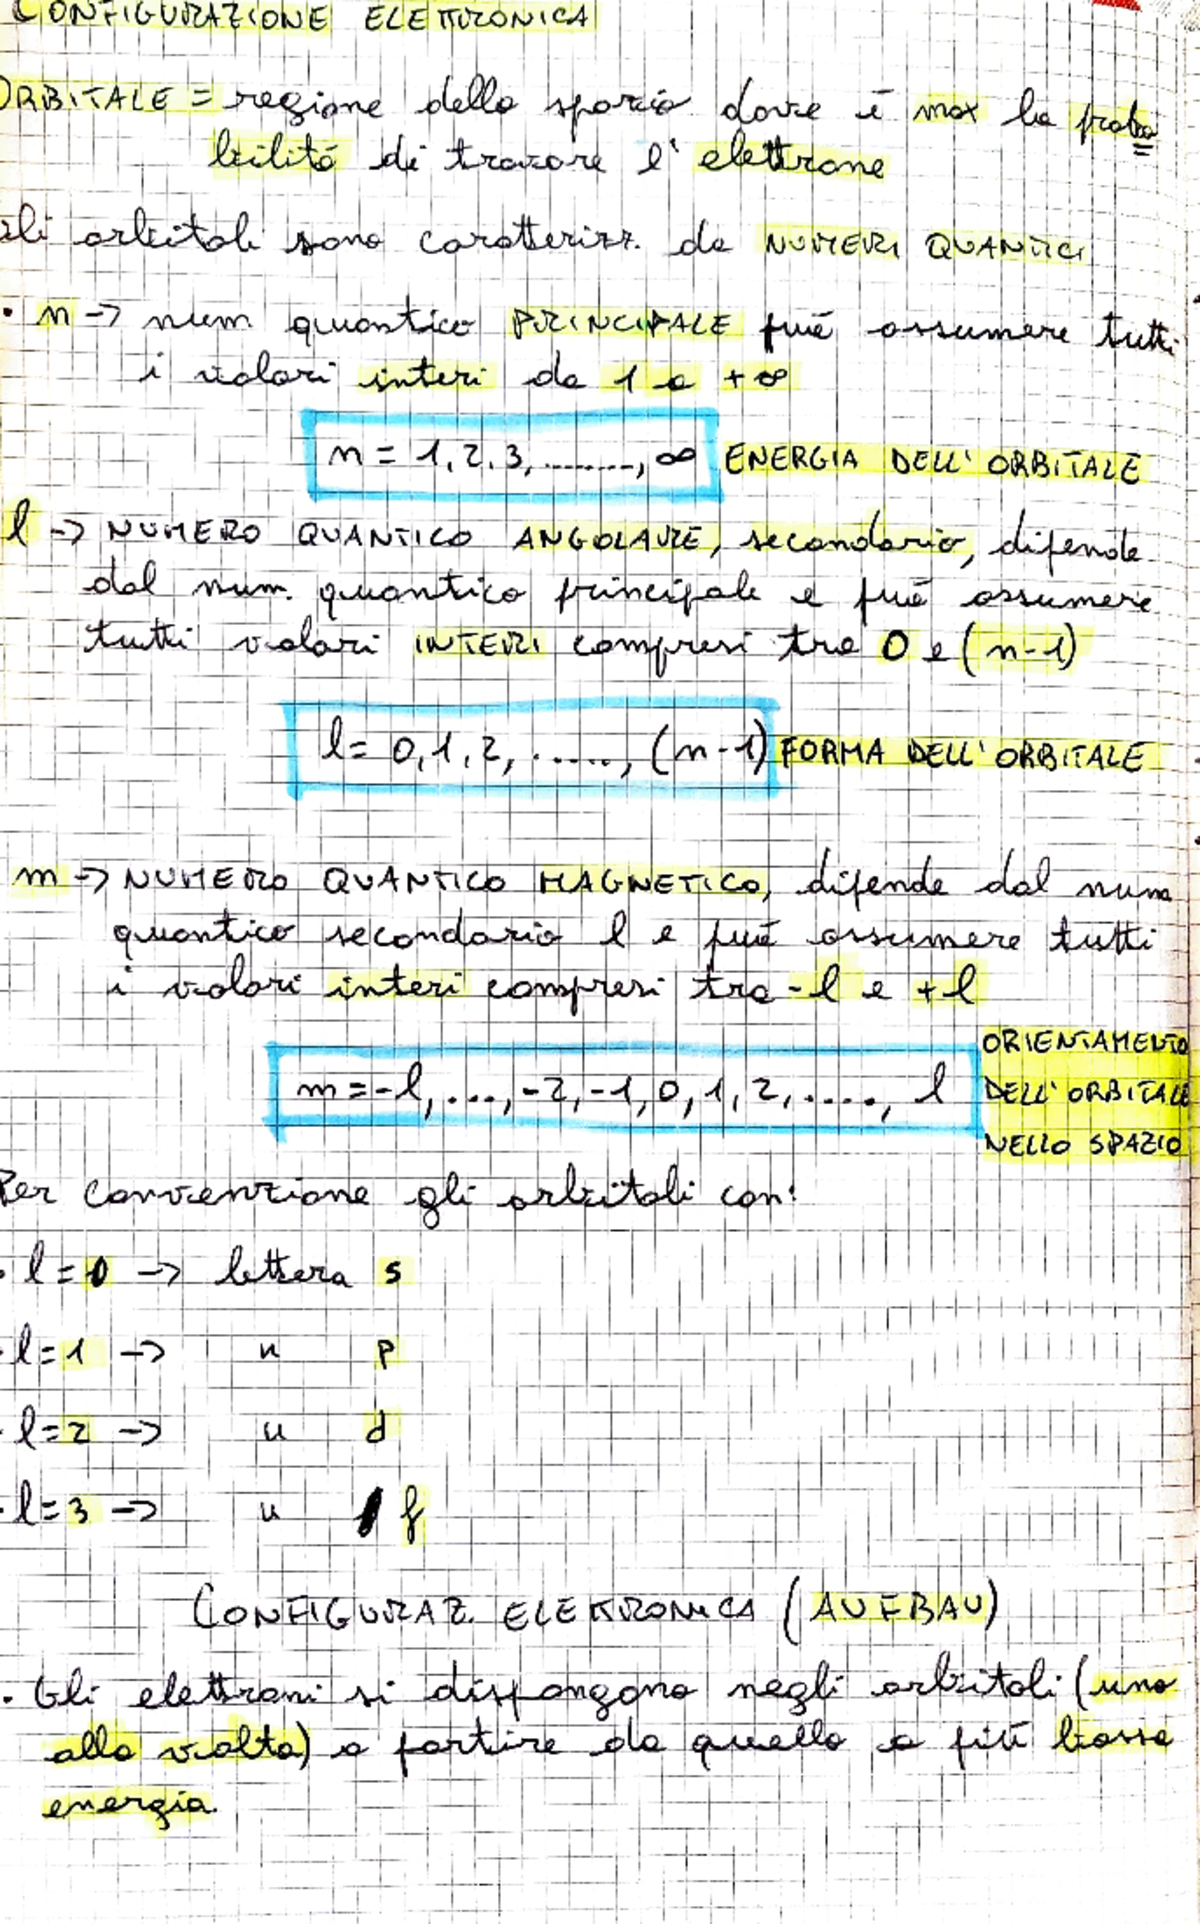 CONFIGURAZIONE ELETTRONICA
ORBITALE = regione dello spazio dove è max la proba
bilità di trovare l' elettrone
Gli orbitali sono caratterizz. da NUMERI QUANTICI
• n -> num. quantico PRINCIPALE può assumere tutti
i valori interi da 1 a +∞
n = 1, 2, 3, ........, ∞ ENERGIA DELL' ORBITALE
l -> NUMERO QUANTICO ANGOLARE, secondario, dipende
dal num. quantico principale e può assumere
tutti valori INTERI compresi tra 0 e (n-1)
l= 0, 1, 2, ......, (n-1) FORMA DELL' ORBITALE
m -> NUMERO QUANTICO MAGNETICO, dipende dal num
quantico secondario l e può assumere tutti
i valori interi compresi tra -l e +l
m = -l, ..., -2, -1, 0, 1, 2, ...., l
ORIENTAMENTO
DELL' ORBITALE
NELLO SPAZIO
Per convenzione gli orbitali con:
• l = 0 -> lettera s
• l = 1 -> " p
• l = 2 -> " d
• l = 3 -> " f
CONFIGURAZ. ELETTRONICA (AUFBAU)
• Gli elettroni si dispongono negli orbitali (uno
alla volta) a partire da quello a più bassa
energia.